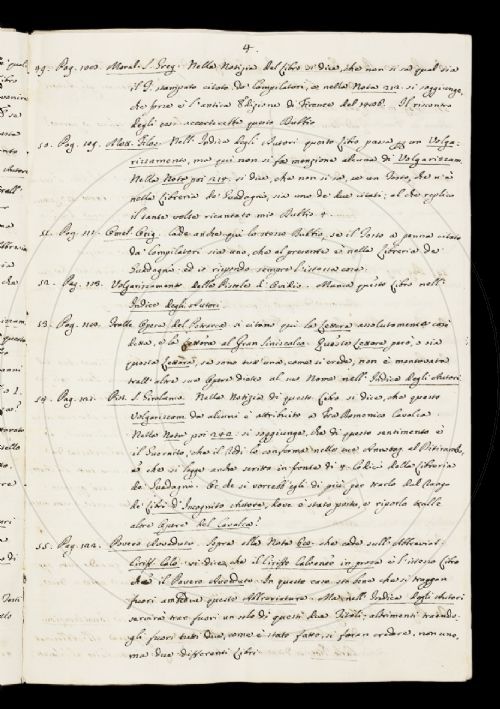 4.
49. Pag. 100. Moral. S. Greg. Nella Notizia del Libro si dice, che non si sa qual sia
il T. stampato citato da' Compilatori, e nella Nota 212. si soggiunge,
che forse è l'antica Edizione di Firenze del 1486. Il riscontro
degli esempi accerterebbe questo Dubbio.
50. Pag. 109. Mor. Filos. Nell'Indice degli Autori questo Libro passa per un Volga-
rizzamento, ma qui non si fa menzione alcuna di Volgarizzam.
Nella Nota poi 214. si dice, che non si sa, se un Testo, che v'è
nella Libreria de' Guadagni, sia uno de' due citati; al che replico
il tante volte ricantato mio Dubbio 4.
51. Pag. 111. Omel. Orig. Cade anche quì lo stesso Dubbio, se il Testo a penna citato
da' Compilatori sia uno, che al presente è nella Libreria de'
Guadagni. ed io rispondo sempre l'istessa cosa.
52. Pag. 118. Volgarizzamento delle Pistole d'Ovidio. Manca questo Libro nell'
Indice degli Autori.
53. Pag. 120. Tralle Opere del Petrarca si citano quì la Lettera assolutamente così
detta, e la Lettera al Gran Siniscalco. Questa Lettera però, o sia
queste Lettere, se sono tutt'una, come si crede, non è mentovata
trall'altre sue Opere dietro al suo Nome nell'Indice degli Autori.
54. Pag. 121. Pist. S. Girolamo. Nella Notizia di questo Libro si dice, che questo
Volgarizzam. da alcuni è attribuito a Fra Domenico Cavalca
Nella Nota poi 242. si soggiunge, che di questo sentimento è
il Sacchetto, che il Redi lo conferma nelle sue Annotaz. al Ditiramb.,
e che si legge anche scritto in fronte di 4. Codici della Libreria
de' Guadagni. Or che si vorrebb'egli di più per trarlo dal Rango
de' Libri d'Incognito Autore, dove è stato posto, e riporlo tralle
altre Opere del Cavalca?
55. Pag. 122. Povero Avveduto. Sopra alla Nota che cade sull'Abbreviat.
Ciriff. Calv. si dice, che il Ciriffo Calvaneo in prosa è l'istesso Libro
che il Povero Avveduto. In questo caso sta bene che si traggan
fuori ambedue queste Abbreviature. Ma nell'Indice degli Autori
servirà trar fuori un solo di questi due Titoli; altrimenti traendo-
gli fuori tutti due, come è stato fatto, si faran credere, non uno,
ma due differenti Libri.